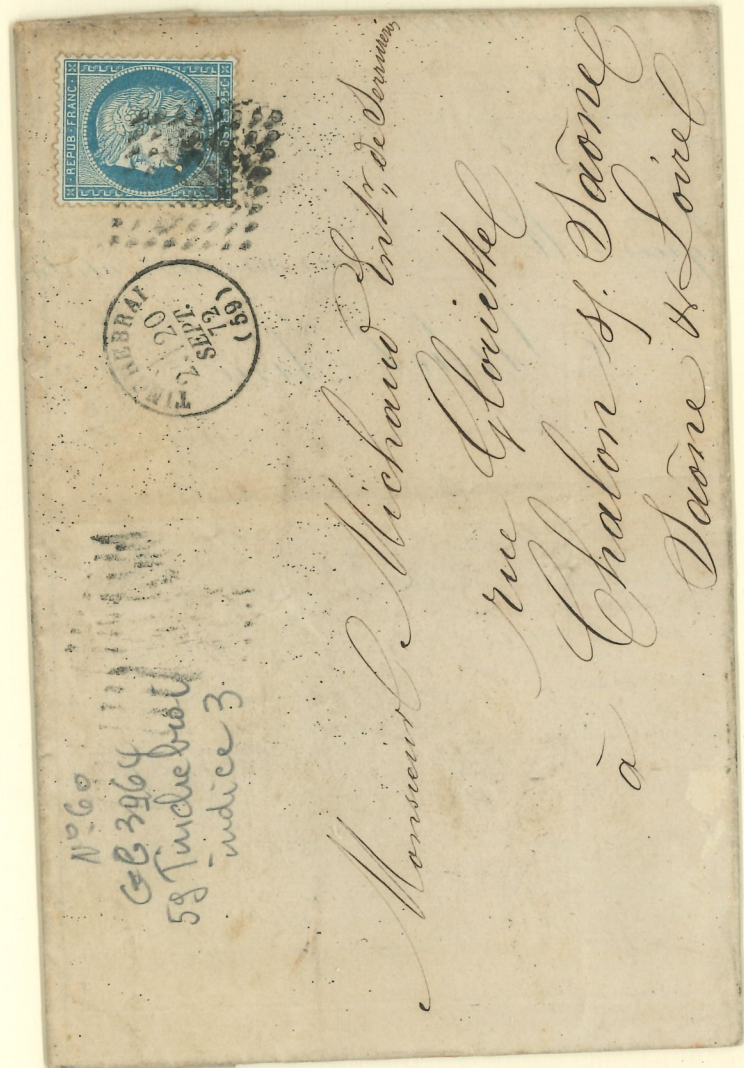 REPUB · FRANC ·
TINCHEBRAI
2
20
SEPT.
72
(59)
N° 60
GC 3964
59 Tinchebrai
indice 3
Monsieur Michaud Entr. de Serrurerie
rue Gloriette
à Chalon s/ Saône
Saône & Loire